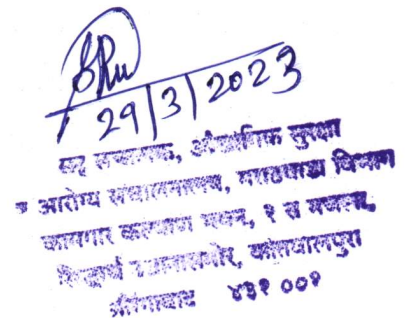 29/3/2023
सह संचालक, औद्योगिक सुरक्षा
व आरोग्य संचालनालय, मराठवाडा विभाग
कामगार कल्याण भवन, १ ला मजला,
सिद्धार्थ उद्यानासमोर, कोतवालपुरा
औरंगाबाद ४३१ ००१